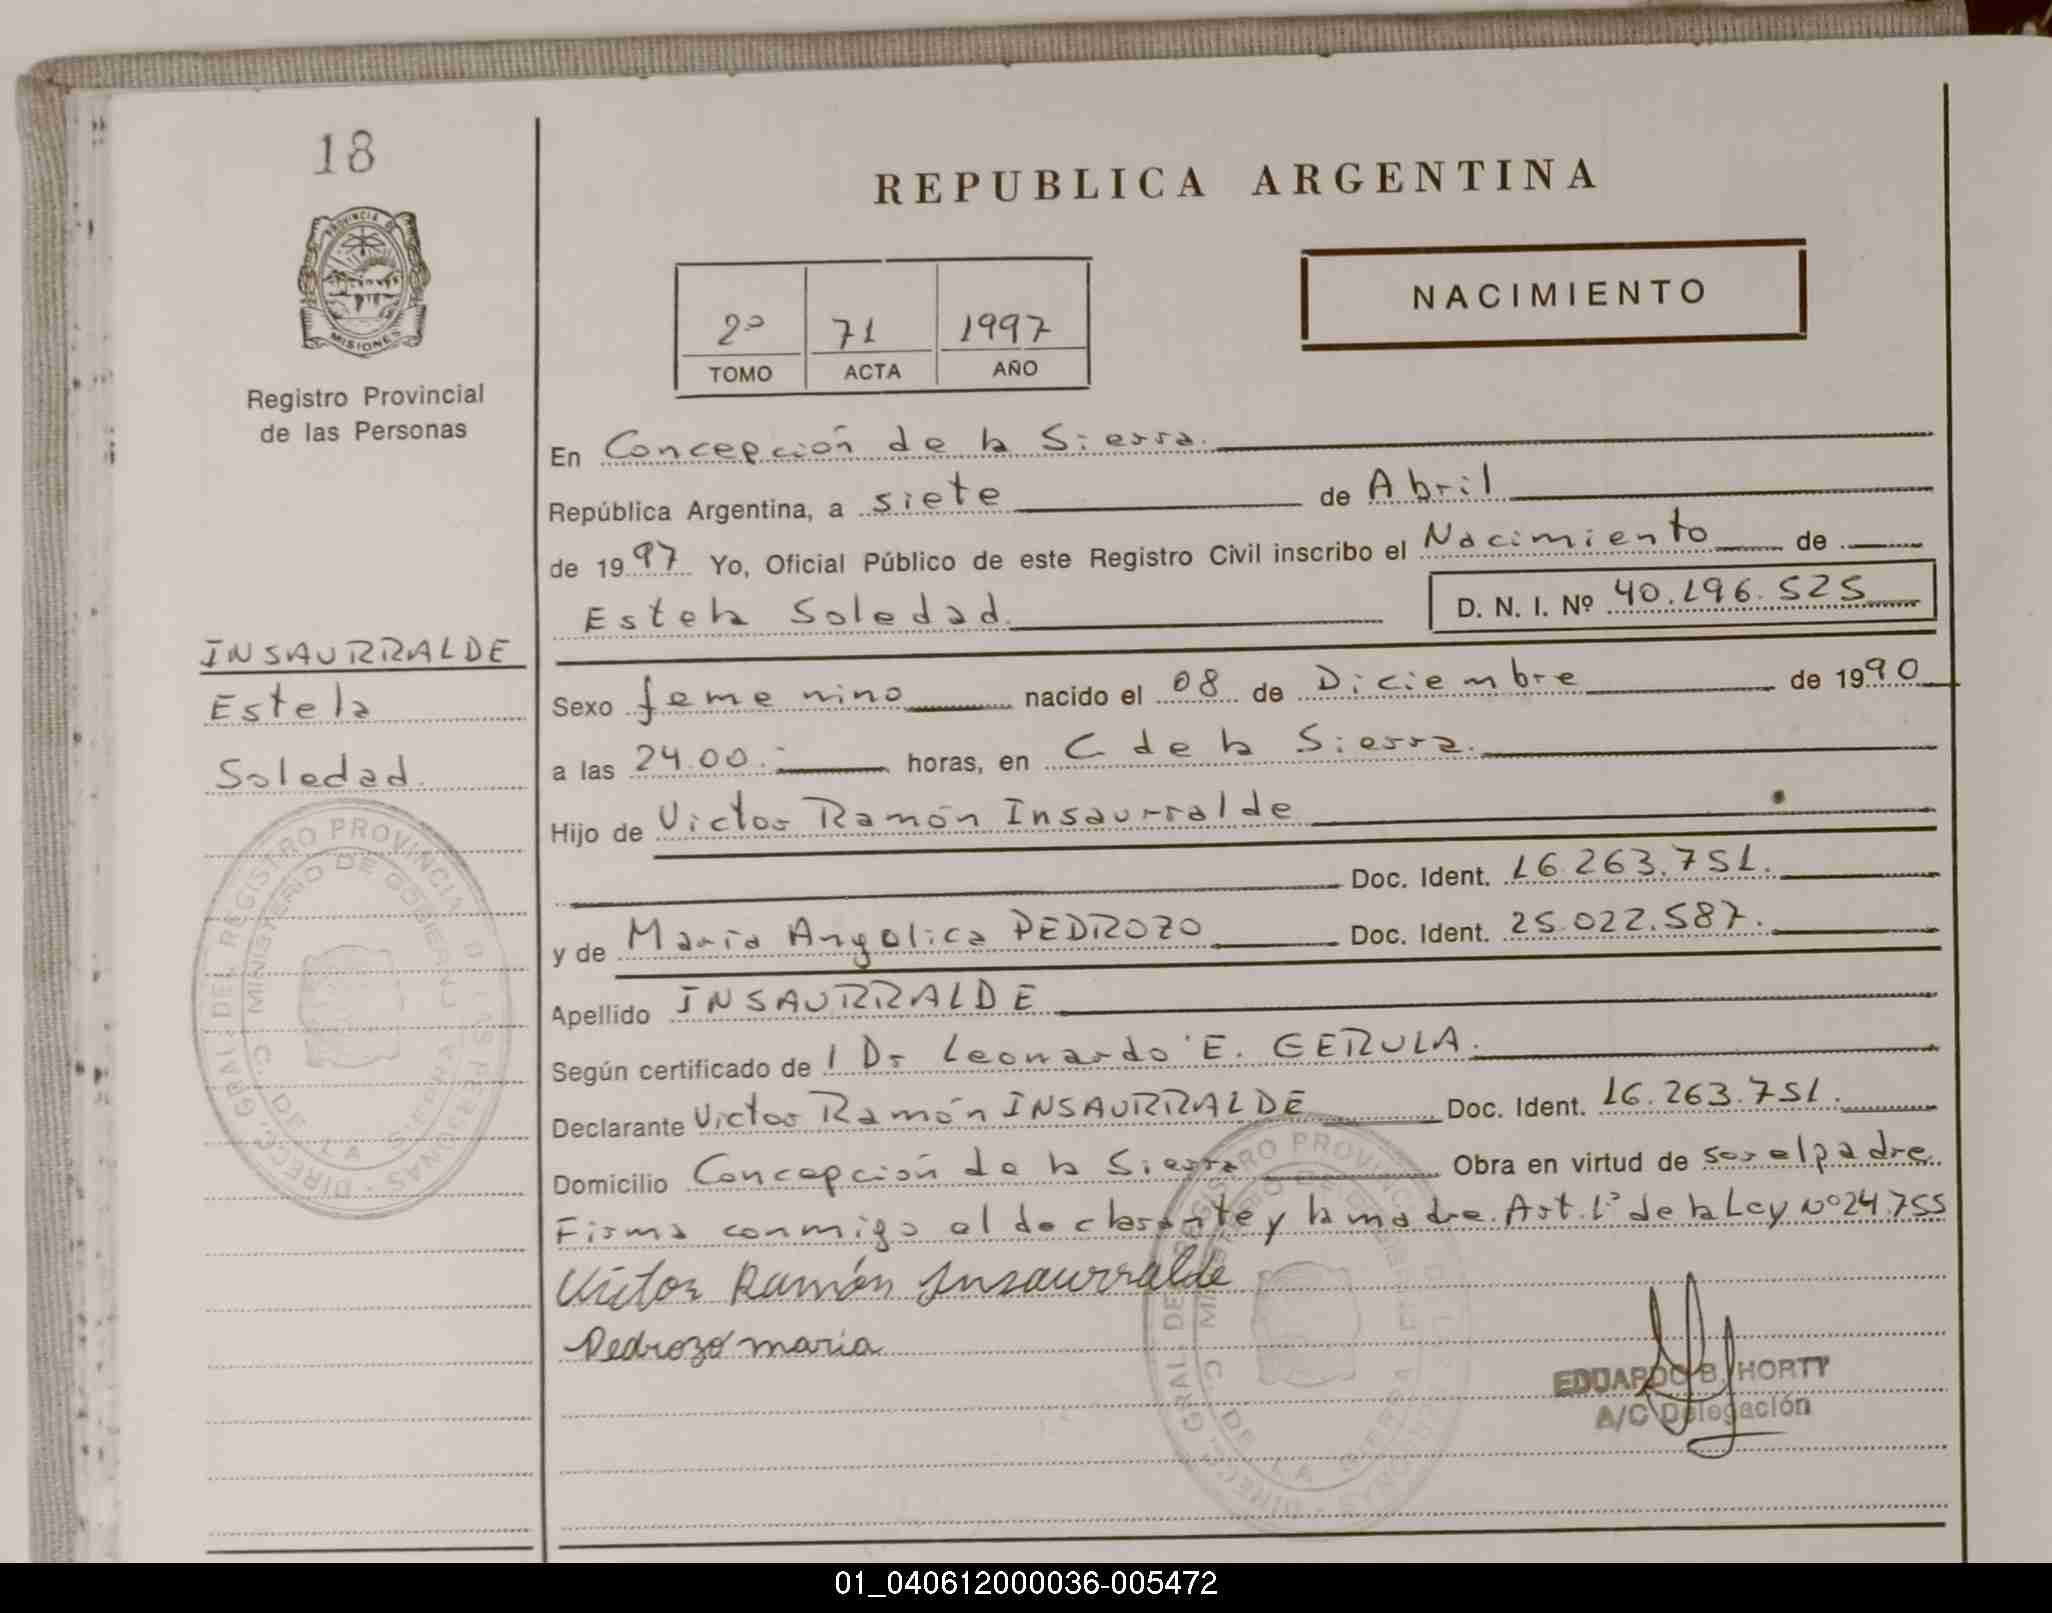 18
PROVINCIA DE
MISIONES
Registro Provincial
de las Personas
INSAURRALDE
Estela
Soledad.
REPUBLICA ARGENTINA
NACIMIENTO
2º 71 1997
TOMO ACTA AÑO
En Concepción de la Sierra.
República Argentina, a siete de Abril
de 1997 Yo, Oficial Público de este Registro Civil inscribo el Nacimiento de
Estela Soledad. D. N. I. Nº 40.196.525
Sexo femenino nacido el 08 de Diciembre de 1990
a las 24.00.- horas, en C de la Sierra.
Hijo de Victor Ramón Insaurralde
Doc. Ident. 16.263.751.
y de Maria Angolica PEDROZO Doc. Ident. 25.022.587.
Apellido INSAURRALDE
Según certificado de l Dr Leonardo E. GERULA.
Declarante Victor Ramón INSAURRALDE Doc. Ident. 16.263.751.
Domicilio Concepción de la Sierra Obra en virtud de ser el padre.
Firma conmigo el declarante y la madre. Art. 1º de la Ley Nº 24.755
Victor Ramón Insaurralde
Pedrozo maria
EDUARDO B. HORTY
A/C Delegación
DIRECC. GRAL. DEL REGISTRO PROVINCIAL DE LAS PERSONAS
MINISTERIO DE GOBIERNO
C. DE LA SIERRA
01_040612000036-005472